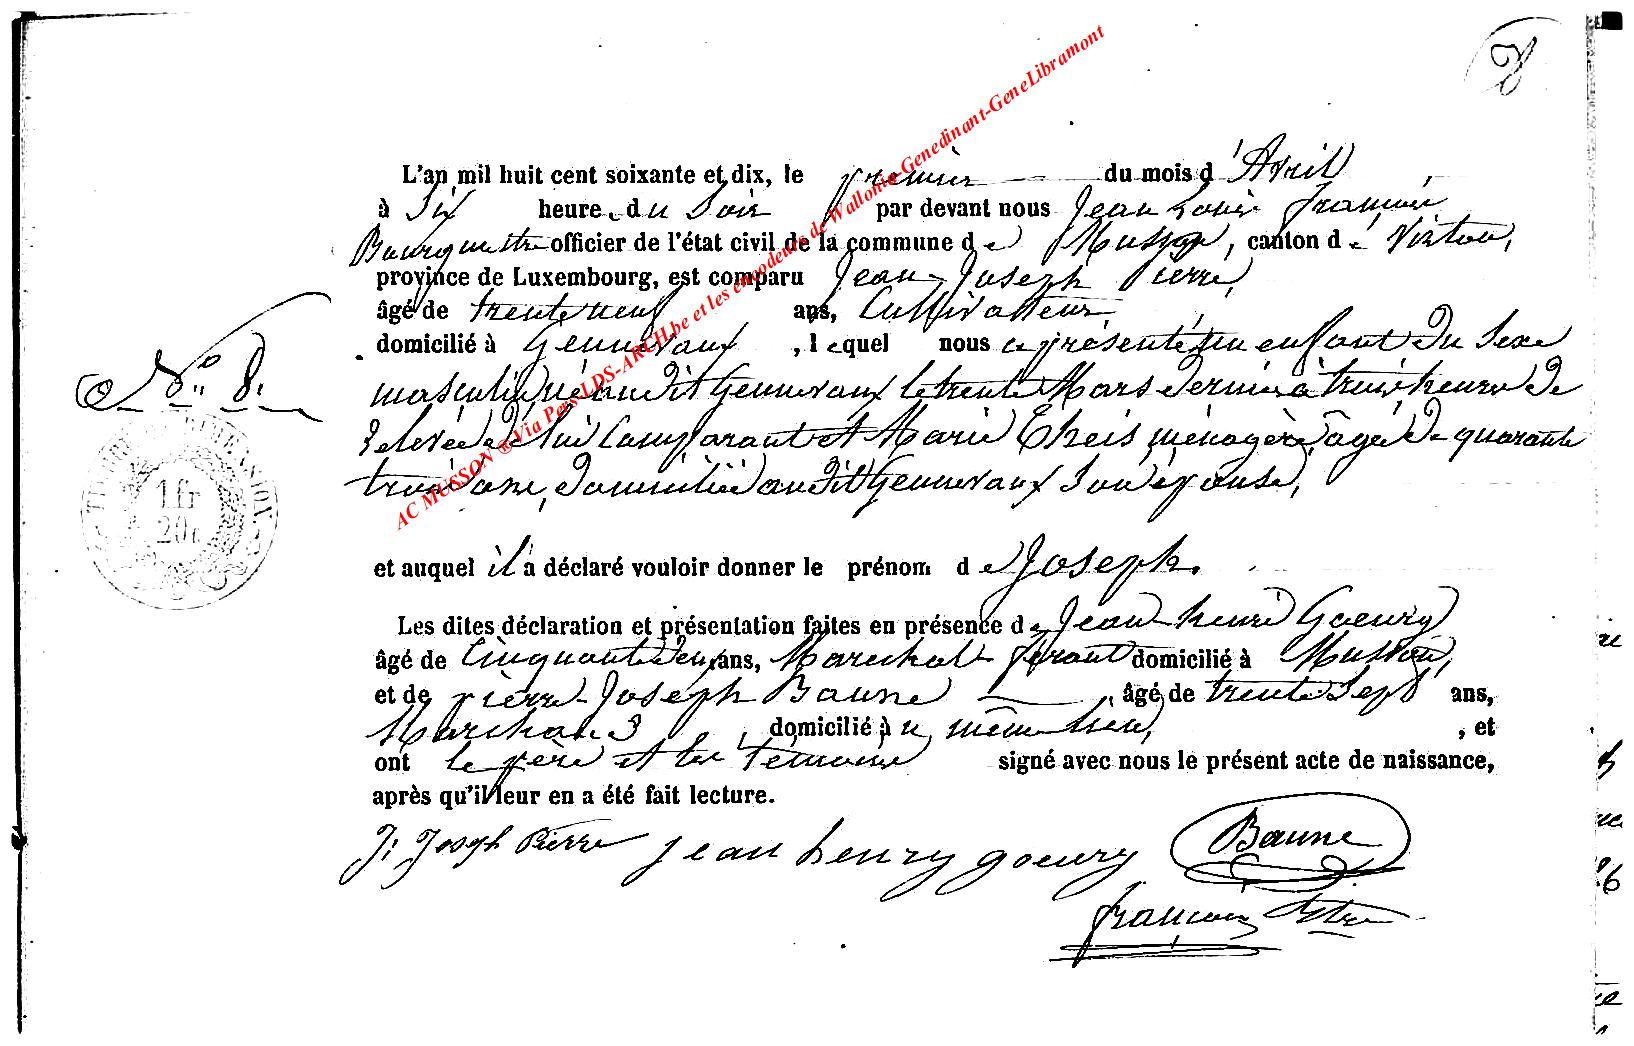 8
L'an mil huit cent soixante et dix, le premier du mois d'Avril
à Six heure du Soir par devant nous Jean Louis François
officier de l'état civil de la commune de Musson, canton de Virton,
province de Luxembourg, est comparu Jean Joseph Pierre,
âgé de trente neuf ans, Cultivateur,
domicilié à Gennevaux, lequel nous a présenté un enfant du Sexe
N° 8.
masculin né audit Gennevaux le trente Mars dernier à trois heures de
relevée de lui Comparant et Marie Theis, ménagère âgée de quarante
trois ans, domiciliée audit Gennevaux Son épouse,
TIMBRE DE DIMENSION
1 fr
20c
et auquel il a déclaré vouloir donner le prénom de Joseph.
Les dites déclaration et présentation faites en présence de Jean henri Goeury
âgé de Cinquante deux ans, Marechal ferant domicilié à Musson,
et de Pierre Joseph Baune, âgé de trente Sept ans,
Marchand, domicilié au même lieu, et
ont le père et les témoins signé avec nous le présent acte de naissance,
après qu'il leur en a été fait lecture.
J. Joseph Pierre jean henry goeury Baune
AC MUSSON ® Via Pers-LDS-ARCH.be et les encodeurs de Wallonia-Genedinant-GeneLibramont